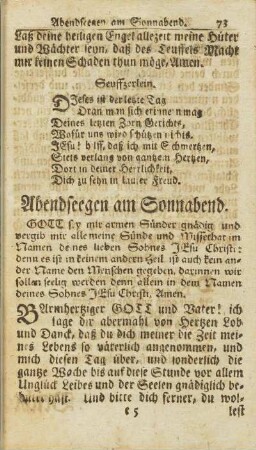 Abendseegen am Sonnabend. 73
Laß deine heiligen Engel allezeit meine Hüter
und Wächter seyn, daß des Teuffels Macht
mir keinen Schaden thun möge, Amen.
Seuffzerlein.
Dieses ist der letzte Tag
Dran man sich erinnern mag
Deines letzten Zorn Gerichts,
Wofür uns wird schützen nichts.
JEsu hilff, daß ich mit Schmertzen,
Stets verlang von gantzem Hertzen,
Dort in deiner Herrlichkeit,
Dich zu sehn in lauter Freud.
Abendseegen am Sonnabend.
GOTT sey mir armen Sünder gnädig und
vergib mir alle meine Sünde und Missethat im
Namen deines lieben Sohnes JEsu Christi:
denn es ist in keinem andern Heil, ist auch kein an-
der Name den Menschen gegeben, darinnen wir
sollen seelig werden denn allein in dem Namen
deines Sohnes JEsu Christi, Amen.
BArmhertziger GOTT und Vater! ich
sage dir abermahl von Hertzen Lob
und Danck, daß du dich meiner die Zeit mei-
nes Lebens so väterlich angenommen, und
mich diesen Tag über, und sonderlich die
gantze Woche bis auf diese Stunde vor allem
Unglück Leibes und der Seelen gnädiglich be-
hütet hast. Und bitte dich ferner, du wol-
e 5 lest